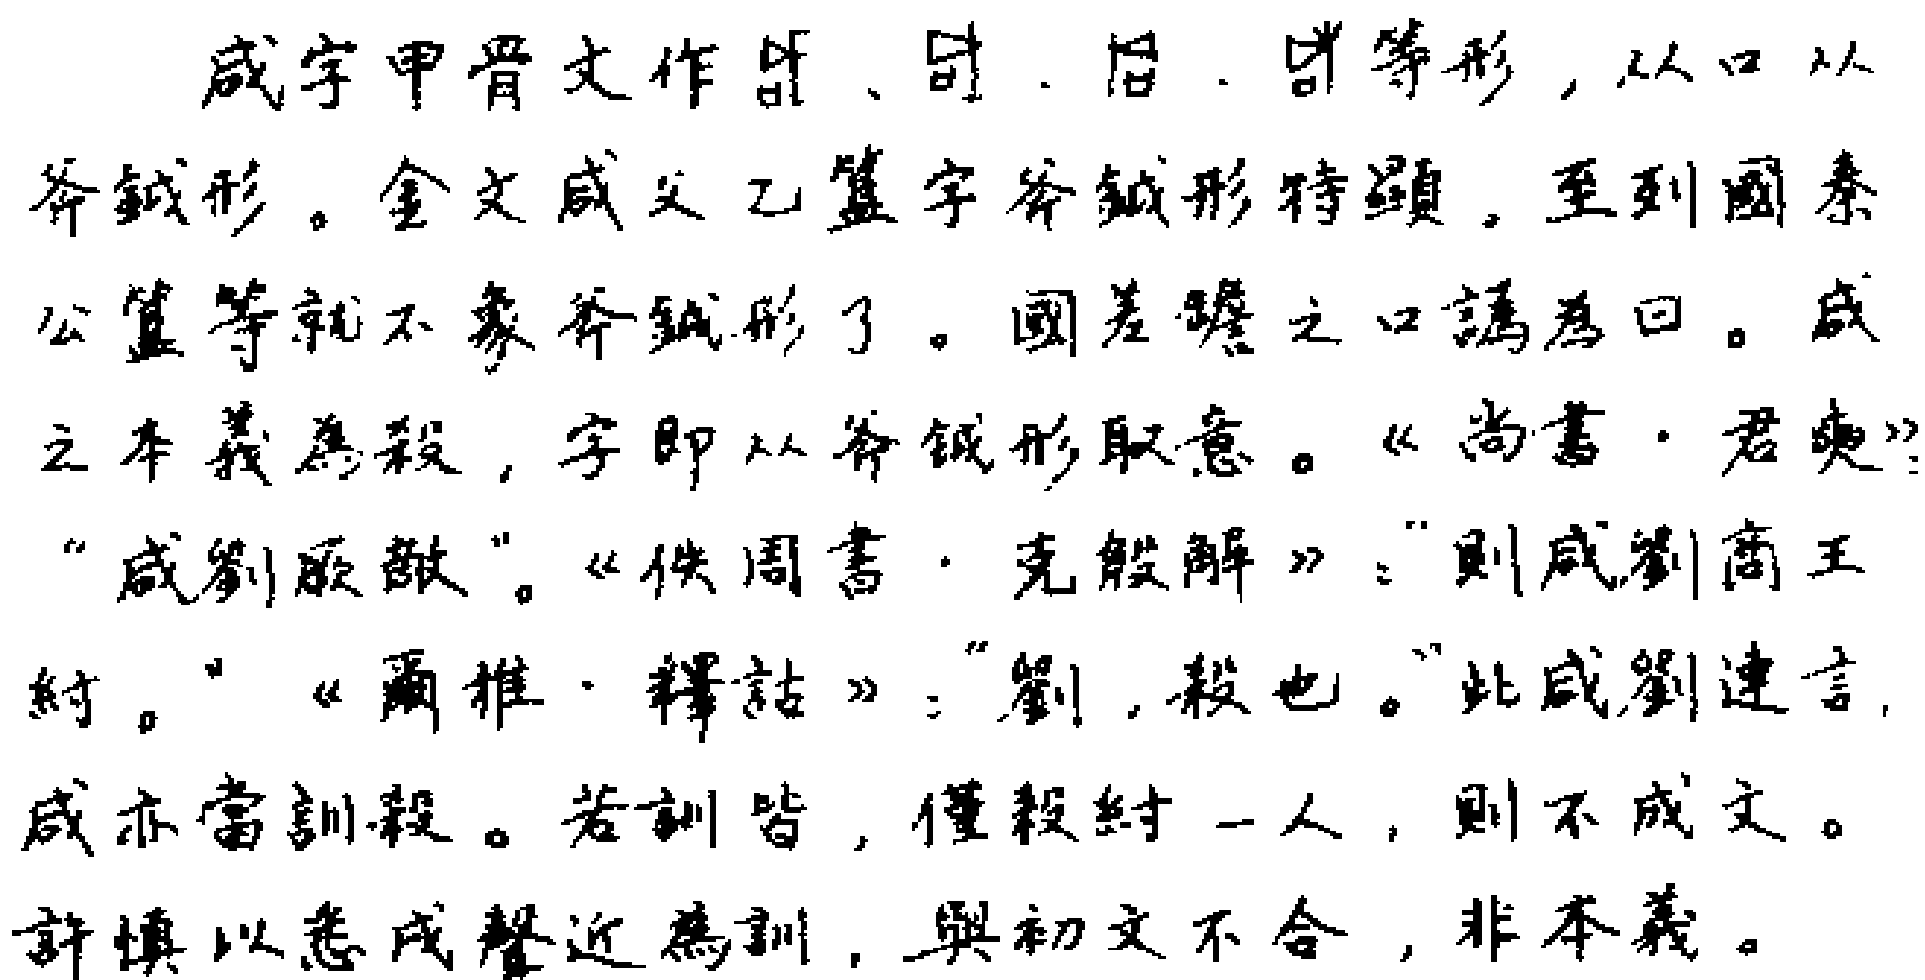 咸字甲骨文作、、、等形，从口从
斧鉞形。金文咸父乙簋字斧鉞形特顯。至到國秦
公簋等就不象斧鉞形了。國差𦉜之口譌為曰。咸
之本義為殺，字即从斧鉞形取意。《尚書·君奭》：
“咸劉厥敵”。《佚周書·克殷解》：“則咸劉商王
紂。”《爾雅·釋詁》：“劉，殺也。”此咸劉連言，
咸亦當訓殺。若訓皆，僅殺紂一人，則不成文。
許慎以悉戌聲近為訓，與初文不合，非本義。